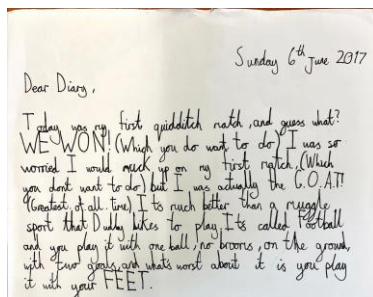 Sunday 6th June 2017
Dear Diary,
Today was my first quidditch match, and guess what?
WE WON! (Which you do want to do) I was so
worried I would muck up on my first match. (Which
you dont want to do) but I was actually the G.O.A.T!
(Greatest of all time) Its much better than a muggle
sport that Dudley likes to play. Its called Football
and you play it with one ball, no brooms, on the ground,
with two goals, and whats worst about it is you play
it with your FEET.